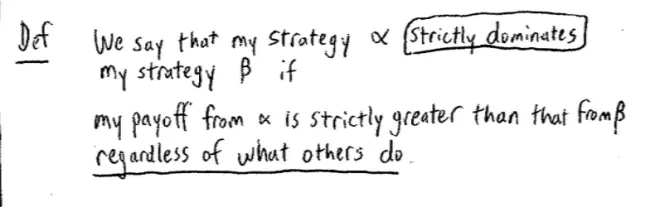 Def We say that my strategy α strictly dominates
my strategy β if
my payoff from α is strictly greater than that from β
regardless of what others do.